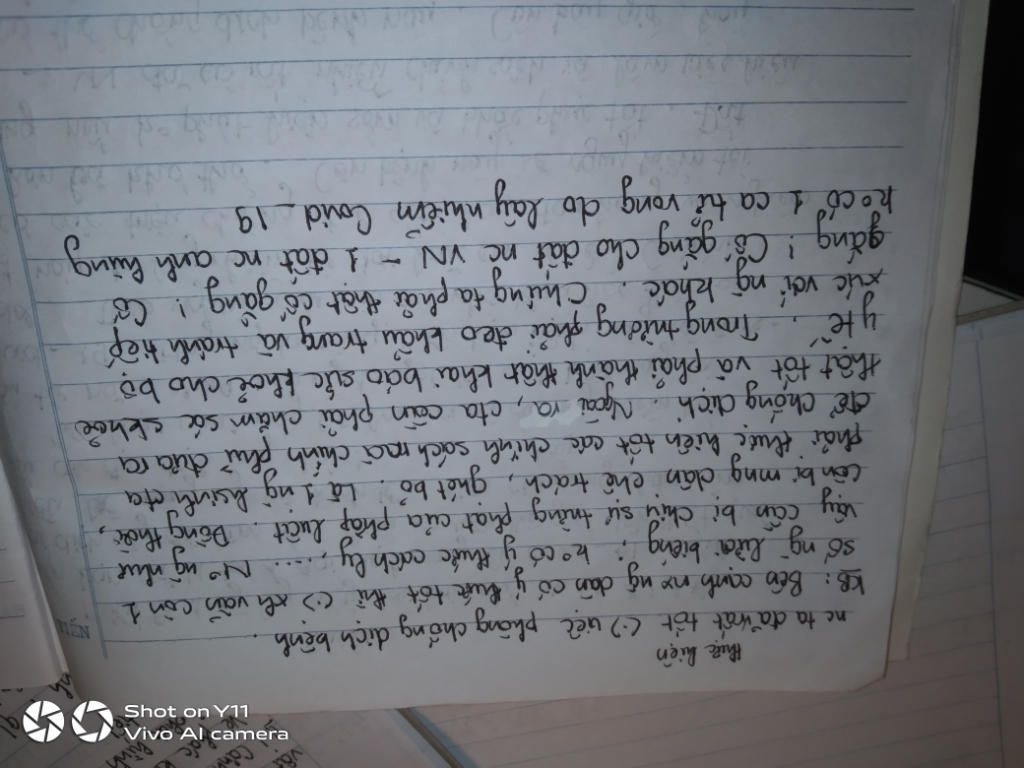 thực hiện
nc ta đã rất tốt (.) việc phòng chống dịch bệnh.
KB: Bên cạnh nx ng dân có ý thức tốt thì (.) xh vẫn còn 1
số ng lười biếng, ko có ý thức cách ly, .... No ng như
vậy cần bị chịu sự trừng phạt của pháp luật. Đồng thời,
cần bị mng dân chê trách, ghét bỏ. Là 1 ng hsinh cta
phải thực hiện tốt các chính sách mà chính phủ đưa ra
để chống dịch. Ngoài ra, cta cần phải chăm sóc skhỏe
thật tốt và phải thành thật khai báo sức khoẻ cho bộ
y tế. Trong trường phải đeo khẩu trang và tránh tiếp
xúc với ng khác. Chúng ta phải thật cố gắng! Cố
gắng! Cố gắng cho đat nc VN - 1 đất nc anh hùng
ko có 1 ca tử vong do lây nhiễm Covid_19
Shot on Y11
Vivo AI camera